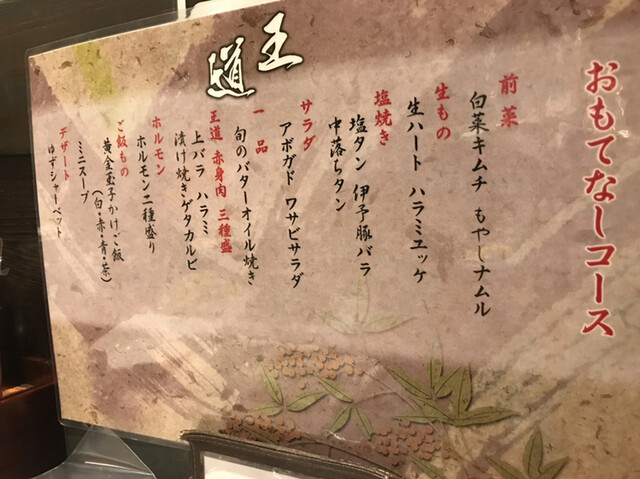 おもてなしコース
前菜
白菜キムチ もやしナムル
生もの
生ハート ハラミユッケ
塩焼き
塩タン 伊予豚バラ
中落ちタン
サラダ
アボガド ワサビサラダ
一品
旬のバターオイル焼き
王道 赤身肉 三種盛
上バラ ハラミ
漬け焼きゲタカルビ
ホルモン
ホルモン二種盛り
ご飯もの
黄金玉子かけご飯
(白・赤・青・茶)
ミニスープ
デザート
ゆずシャーベット
王道